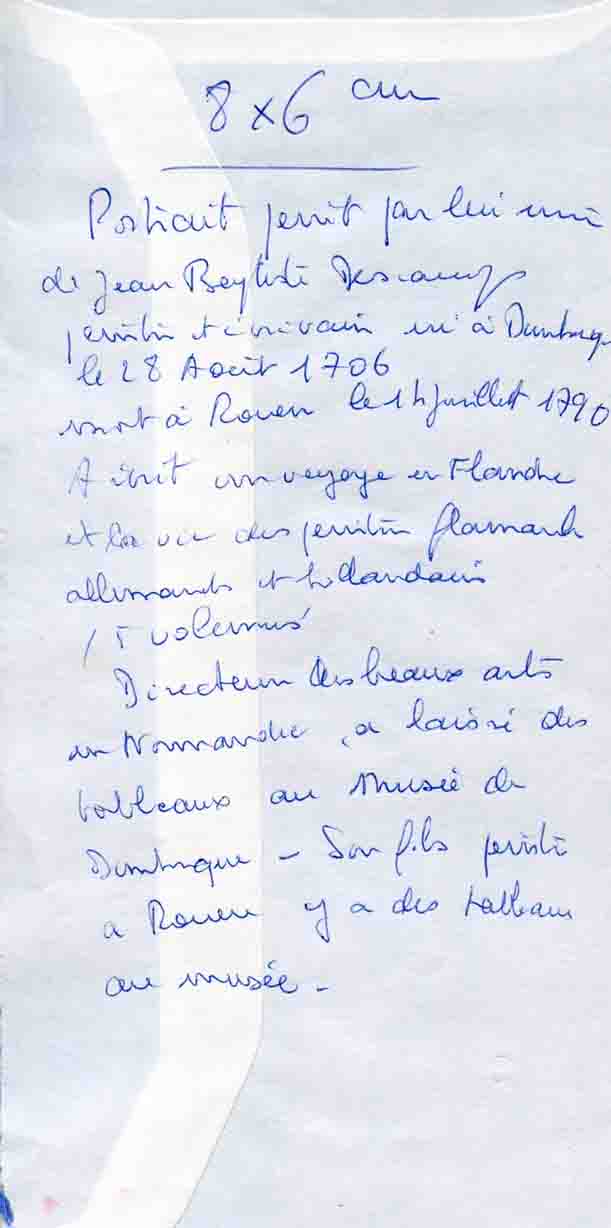 8 x 6 cm
Portrait peint par lui même
de Jean Baptiste Descamps
peintre et écrivain né à Dunkerque
le 28 Août 1706
mort à Rouen le 14 juillet 1790
A écrit un voyage en Flandre
et la vie des peintres flamands
allemands et hollandais
volumes
Directeur des beaux arts
en Normandie, a laissé des
tableaux au Musée de
Dunkerque - Son fils peintre
a Rouen y a des tableaux
au musée -